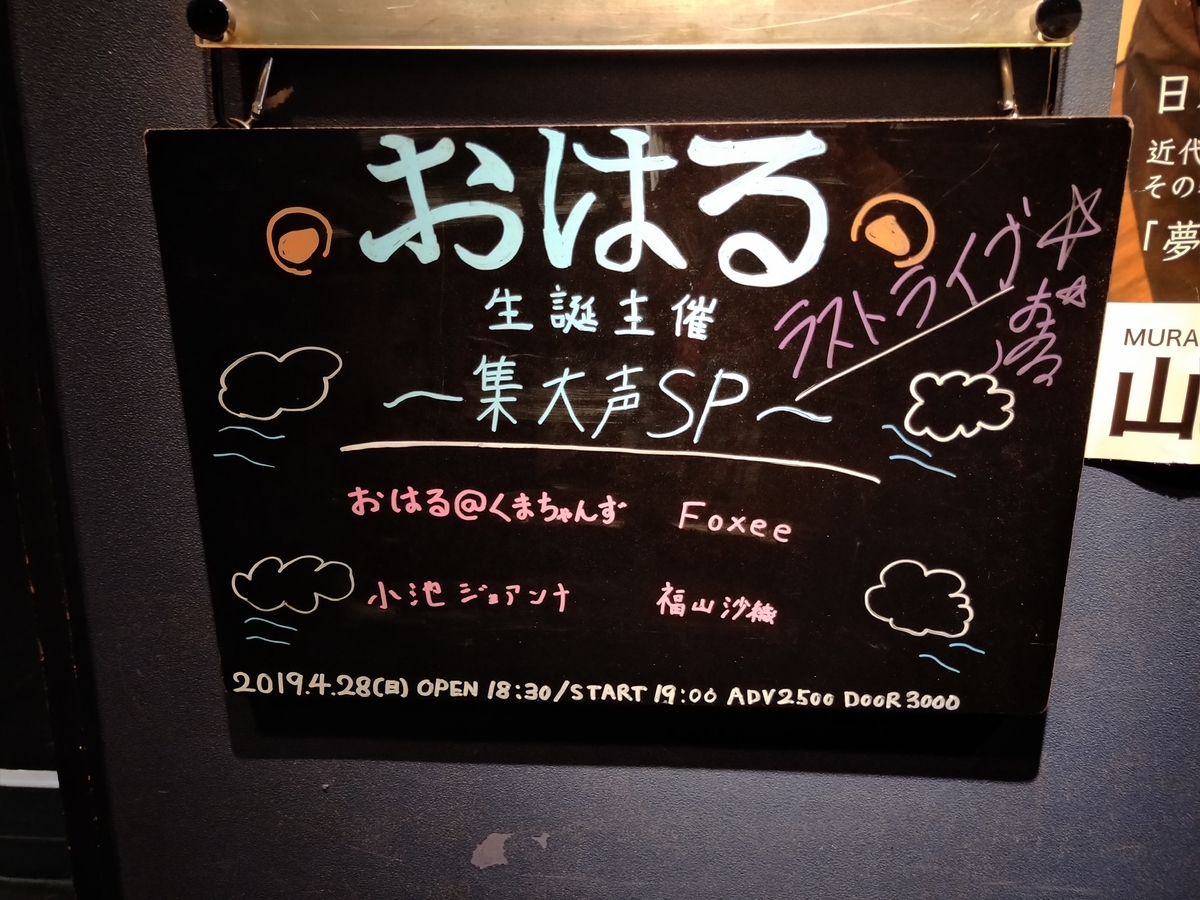 おはる
生誕主催
ラストライヴ☆
おはる☆
～集大声SP～
おはる@くまちゃんず Foxee
小池ジョアンナ 福山沙織
2019.4.28(日) OPEN 18:30/START 19:00 ADV2500 DOOR3000
日
近代
その
「夢
MURA
山